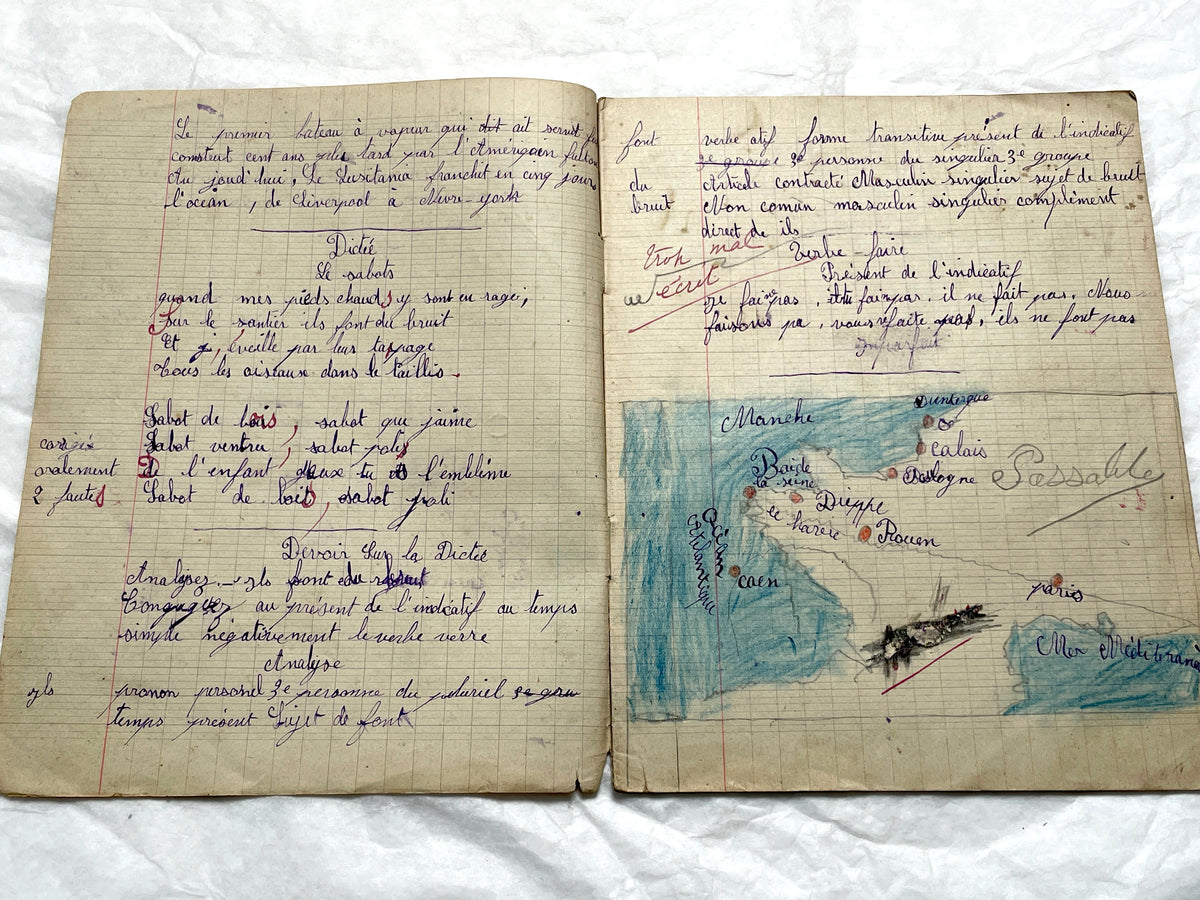 Le premier bateau à vapeur qui dit ait servit fu
construit cent ans plu tard par l'Américaen fulton
Au joud'hui, Le Lusitania franchit en cinq jours
l'océan, de Liverpool à Nivre-york
Dictée
Le sabots
quand mes pieds chauds y sont en rage,
Sur le santier ils font du bruit
Et j'éveille par leus tapage
Tous les oiseaux dans le taillis.
Sabot de bois, sabot que j'aime
Sabot ventru, sabot potes
De l'enfant tu es l'emblème
Sabot de bois, sabot joli
corigé
oralement
2 fautes
Devoir Sur la Dictée
Analysez - ils font du bruit
Conguguez au présent de l'indicatif au temps
simple négativement le verbe verre
Analyse
ils pronon personel 3e personne du pluriel 3e grou
temps présent Sujet de font
font verbe atif forme transitive présent de l'indicatif
3e groupe 3e personne du singulier 3e groupe
du Article contracté Masculin singulier sujet de bruit
bruit Non comun masculin singulier complément
direct de ils
trop mal
écrit
Verbe-faire
Présent de l'indicatif
il ne fait pas. Nous
faisons pa, vous faite pas, ils ne font pas
Imparfait
Manche
Dunkerque
calais
Bologne
Baide
la seine
Dieppe
le havre
Rouen
Océan
Athlantique
caen
paris
Mer Méditerané
Passable